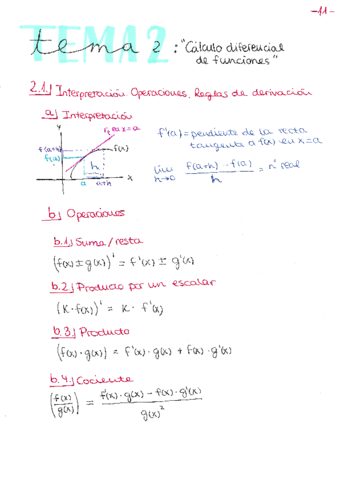 -11-
TEMA 2
tema 2: "Cálculo diferencial
de funciones"
2.1.) Interpretación, Operaciones, Reglas de derivación
a) Interpretación
y
r.tg en x=a
f(a+h)
f(a)
f(x)
h
a a+h x
f'(a) = pendiente de la recta
tangente a f(x) en x=a
lim h→0 f(a+h) - f(a) / h = nº real
b) Operaciones
b.1) Suma/resta
(f(x) ± g(x))' = f'(x) ± g'(x)
b.2) Producto por un escalar
(K·f(x))' = K · f'(x)
b.3) Producto
(f(x)·g(x)) = f'(x)·g(x) + f(x)·g'(x)
b.4) Cociente
(f(x)/g(x)) = f'(x)·g(x) - f(x)·g'(x) / g(x)²